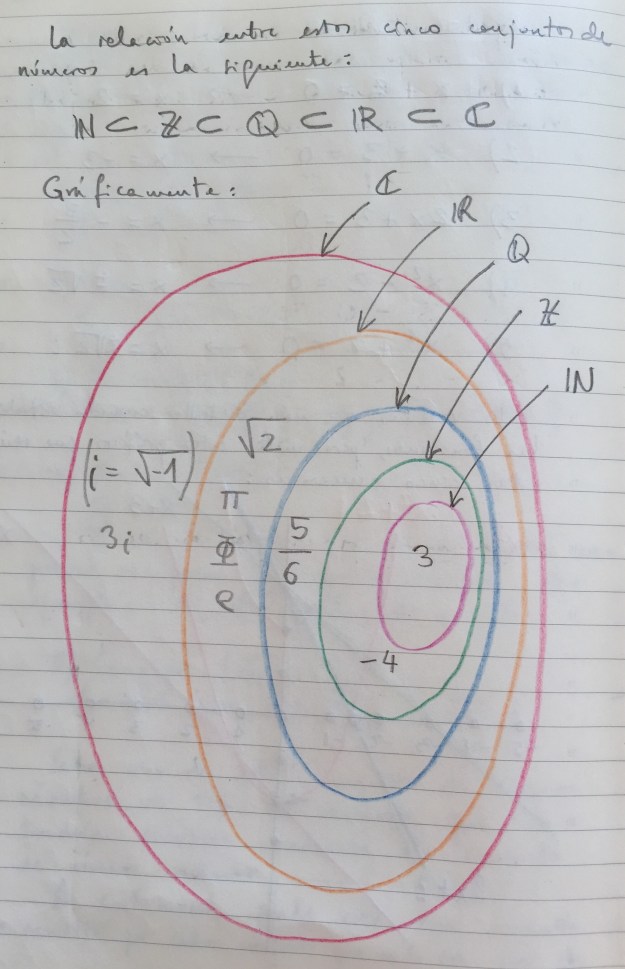 La relación entre estos cinco conjuntos de
números es la siguiente:
ℕ ⊂ ℤ ⊂ ℚ ⊂ ℝ ⊂ ℂ
Gráficamente:
ℂ
ℝ
ℚ
ℤ
ℕ
(i = √-1)
√2
π
3i
Φ
5/6
3
e
-4